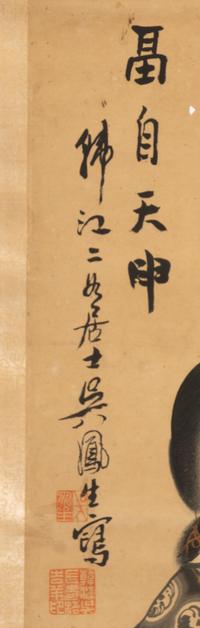 畐自天申
歸江二如居士吳鳳生寫